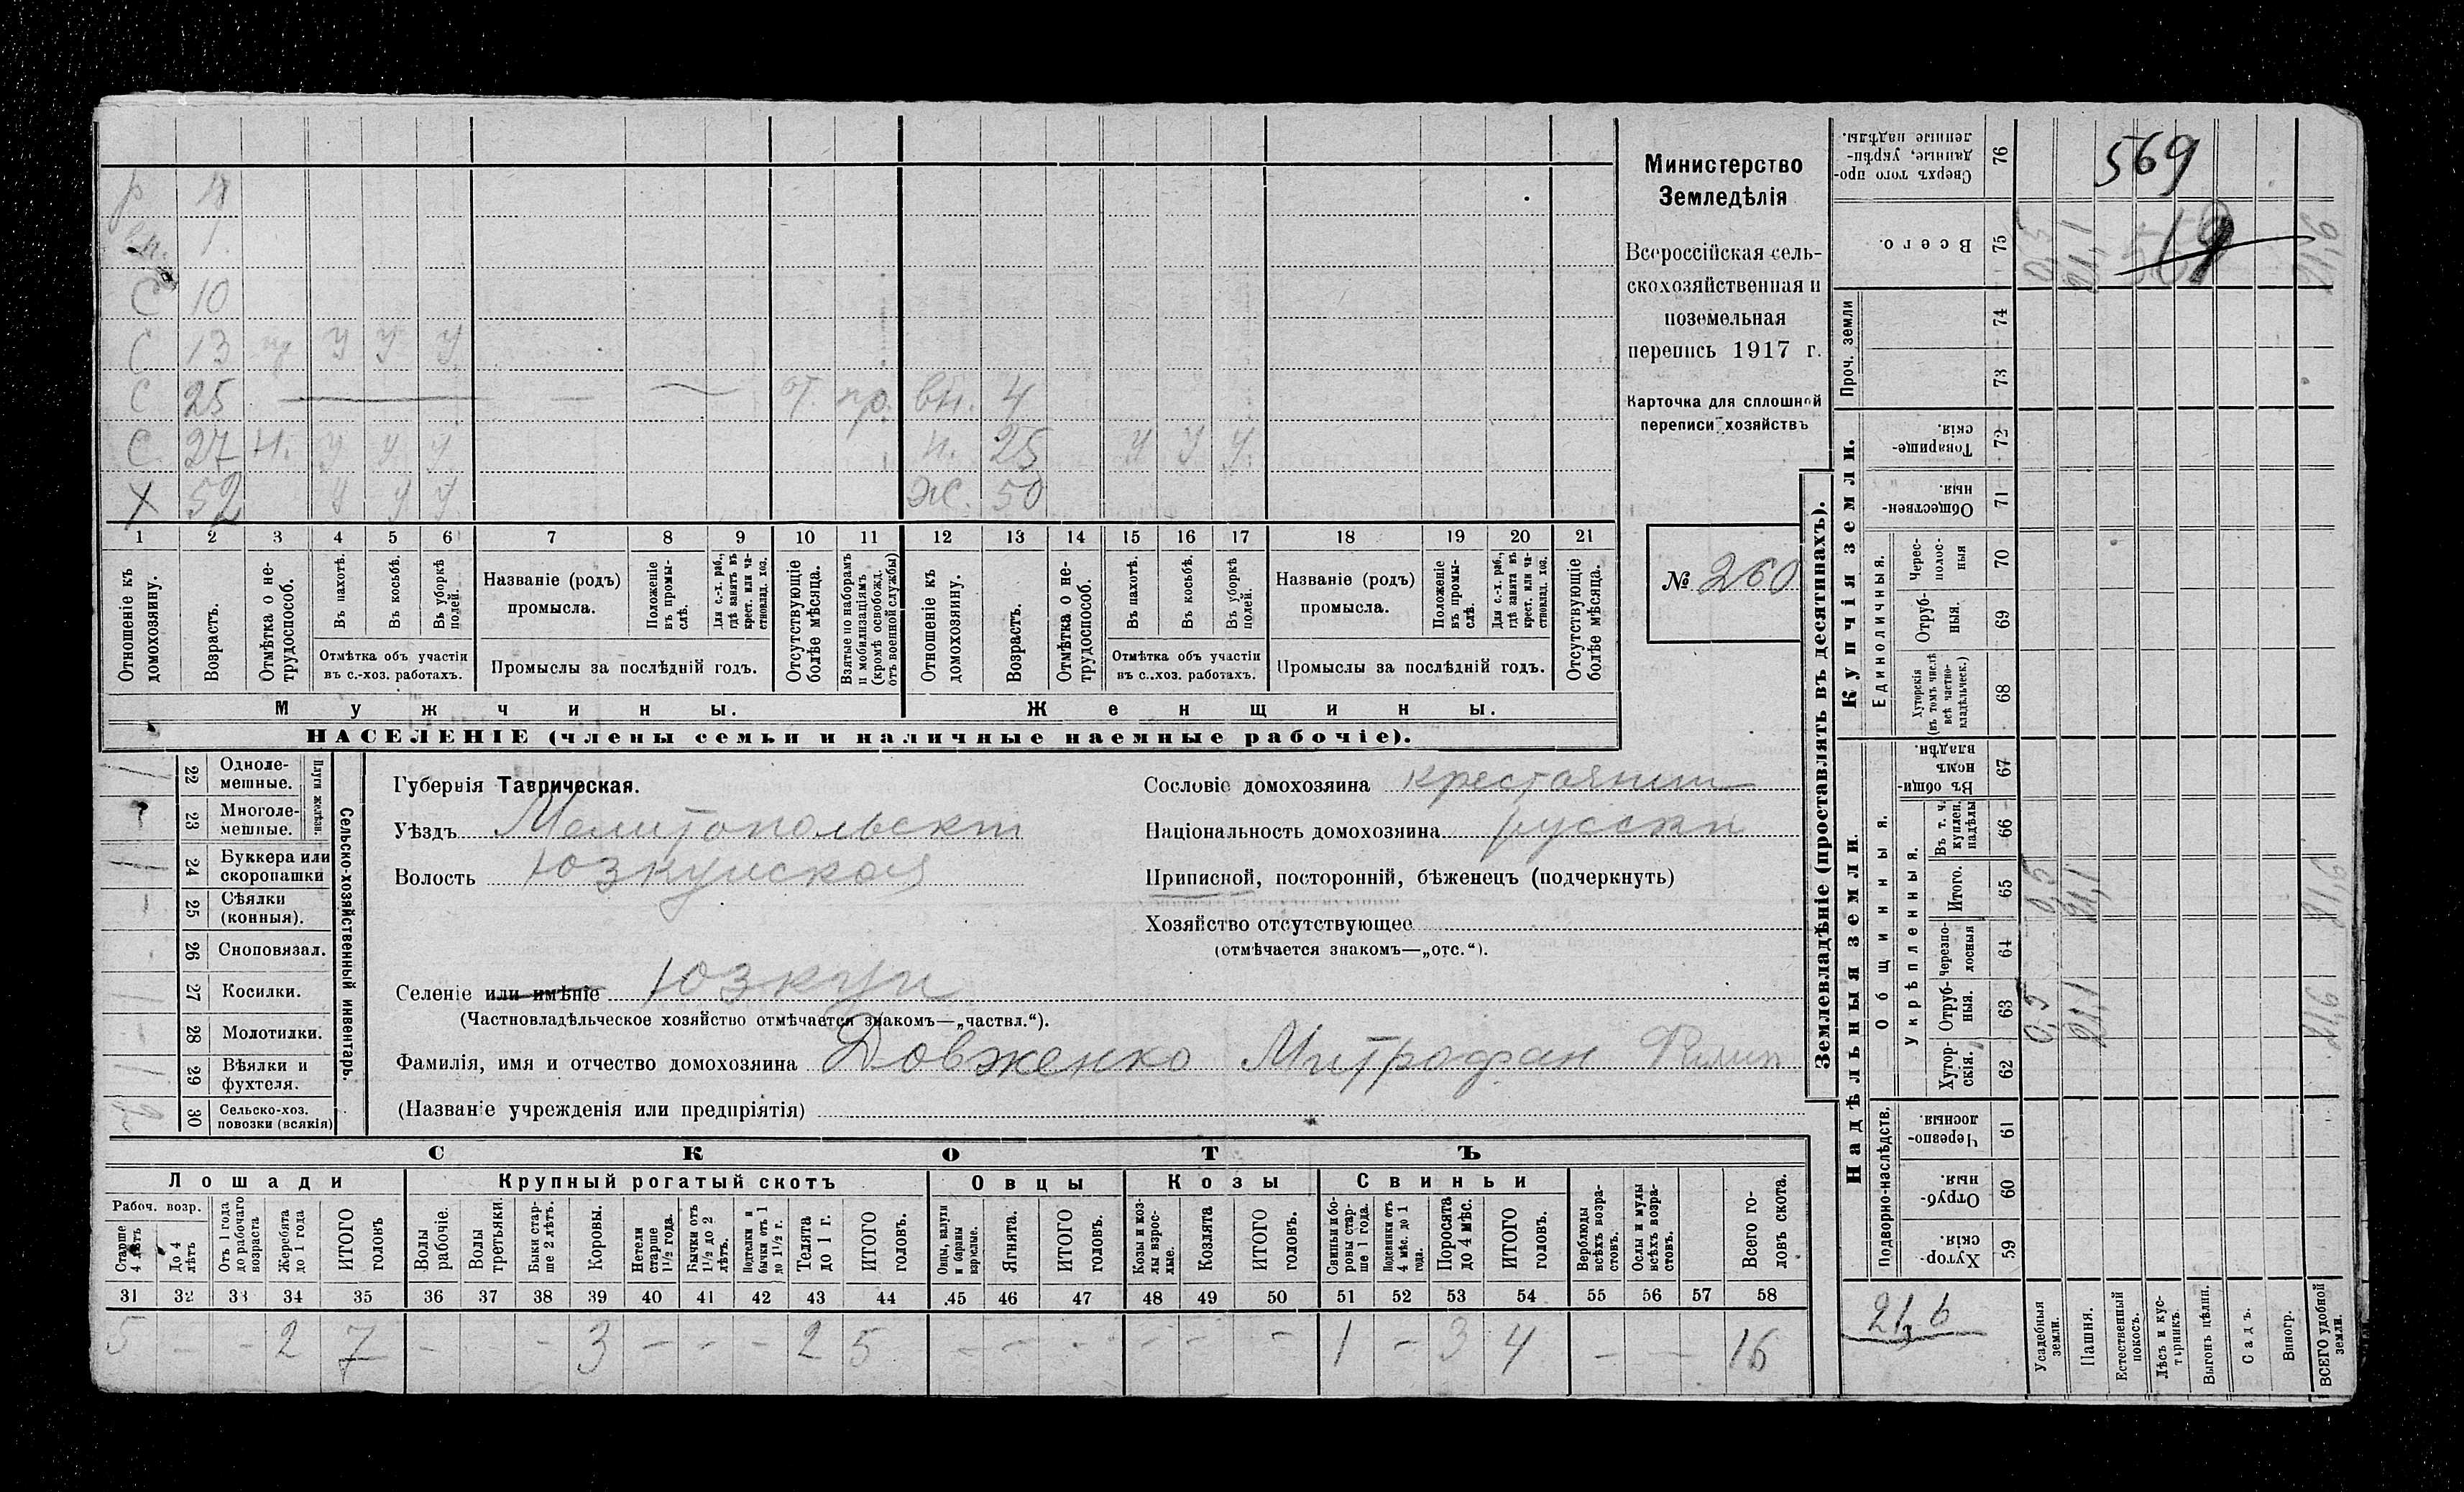 р 18
вн. 1
С 10
С 13 пр У У У
С 25 — — ~ от. пр. вн. 4
С 27 Н. У У У н. 25 У У У
Х 52 У У У Ж. 50
1 2 3 4 5 6 7 8 9 10 11 12 13 14 15 16 17 18 19 20 21
Отношеніе къ домохозяину.
Возрастъ.
Отмѣтка о не-
трудоспособ.
Въ пахотѣ.
Въ косьбѣ.
Въ уборкѣ полей.
Отмѣтка объ участіи
въ с.-хоз. работахъ.
Названіе (родъ)
промысла.
Положеніе
въ промы-
слѣ.
Для с.-х. раб.,
гдѣ занятъ въ
крест. или ча-
стновлад. хоз.
Промыслы за послѣдній годъ.
Отсутствующіе
болѣе мѣсяца.
Взятые по наборамъ
и мобилизаціямъ
(кромѣ освобожд.
отъ военной службы)
Отношеніе къ
домохозяину.
Возрастъ.
Отмѣтка о не-
трудоспособ.
Въ пахотѣ.
Въ косьбѣ.
Въ уборкѣ
полей.
Отмѣтка объ участіи
въ с.-хоз. работахъ.
Названіе (родъ)
промысла.
Положеніе
въ промы-
слѣ.
Для с.-х. раб.,
гдѣ занята въ
крест. или ча-
стновлад. хоз.
Промыслы за послѣдній годъ.
Отсутствующіе
болѣе мѣсяца.
Мужчины. Женщины.
НАСЕЛЕНІЕ (члены семьи и наличные наемные рабочіе).
Министерство
Земледѣлія
Всероссійская сель-
скохозяйственная и
поземельная
перепись 1917 г.
Карточка для сплошной
переписи хозяйствъ
№ 260
22 Однолемешные.
23 Многолемешные.
Плуги желѣзн.
24 Буккера или
скоропашки
25 Сѣялки
(конныя).
26 Сноповязал.
27 Косилки.
28 Молотилки.
29 Вѣялки и
фухтеля.
30 Сельско-хоз.
повозки (всякія)
Сельско-хозяйственный инвентарь.
Губернія Таврическая.
Уѣздъ Мелитопольскій
Волость Юзкуйская
Селеніе или имѣніе Юзкуи
(Частновладѣльческое хозяйство отмѣчается знакомъ—„частвл.“).
Фамилія, имя и отчество домохозяина Довженко Митрофан Филип
(Названіе учрежденія или предпріятія)
Сословіе домохозяина крестьянин
Національность домохозяина русскій
Приписной, посторонній, бѣженецъ (подчеркнуть)
Хозяйство отсутствующее
(отмѣчается знакомъ—„отс.“).
СКОТЪ
Лошади Крупный рогатый скотъ Овцы Козы Свиньи
Рабоч. возр.
Старше
4 лѣтъ
До 4
лѣтъ
Отъ 1 года
до рабочаго
возраста
Жеребята
до 1 года
ИТОГО
головъ
Волы
рабочіе.
Волы
третьяки.
Быки стар-
ше 2 лѣтъ.
Коровы.
Нетели
старше
1½ года.
Бычки отъ
1½ до 2
лѣтъ.
Подтелки и
бычки отъ 1
до 1½ г.
Телята
до 1 г.
ИТОГО
головъ.
Овцы, валухи
и бараны
взрослые.
Ягнята.
ИТОГО
головъ.
Козы и коз-
лы взрос-
лые.
Козлята
ИТОГО
головъ.
Свиньи и бо-
ровы стар-
ше 1 года.
Подсвинки отъ
4 мѣс. до 1
года.
Поросята
до 4 мѣс.
ИТОГО
головъ.
Верблюды
всѣхъ возра-
стовъ.
Ослы и мулы
всѣхъ возра-
стовъ.
Всего го-
ловъ скота.
31 32 33 34 35 36 37 38 39 40 41 42 43 44 45 46 47 48 49 50 51 52 53 54 55 56 57 58
5 — - 2 7 - - 3 — - - 2 5 - - - - - - 1 - 3 4 — — 16
Землевладѣніе (проставлять въ десятинахъ).
Надѣльныя земли. Купчія земли. Проч. земли
Подворно-наслѣдств.
Общинныя.
Укрѣпленныя.
Единоличныя.
59 Хутор-
скія.
60 Отруб-
ныя.
61 Черезпо-
лосныя
62 Хутор-
скія.
63 Отруб-
ныя.
64 Черезпо-
лосныя
65 Итого.
66 Въ т. ч.
куплен.
надѣлы
67 Въ общи-
номъ
владѣн.
68 Хуторскія
(въ томъ числѣ
всѣ частно-
владѣльческ.)
69 Отруб-
ныя.
70 Черес-
полос-
ныя
71 Обществен-
ныя.
72 Товарище-
скія.
73
74
75 Всего.
76 Сверхъ того про-
данные, укрѣп-
ленные надѣлы.
Усадебныя
земли.
Пашня.
Естественный
покосъ.
Лѣсъ и кус-
тарникъ.
Выгонъ цѣлин.
Садъ.
Виногр.
ВСЕГО удобной
земли.
569
0,5 21,1 21,6
0,5 21,1 21,6
0,5 21,1 21,6
21,6